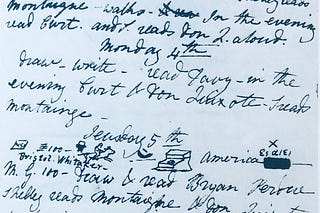 Montaigne - walks - In the evening
read Curt. and S. reads Don Q. aloud.
Monday 4th
draw - write - read Davy - in the
evening Curt & Don Quixote - S reads
montaigne -
Tuesday 5th
100 america
Bristol. Whitaker
M. G. 100 - draw & read Bryan
Shelley reads Montaigne & Don